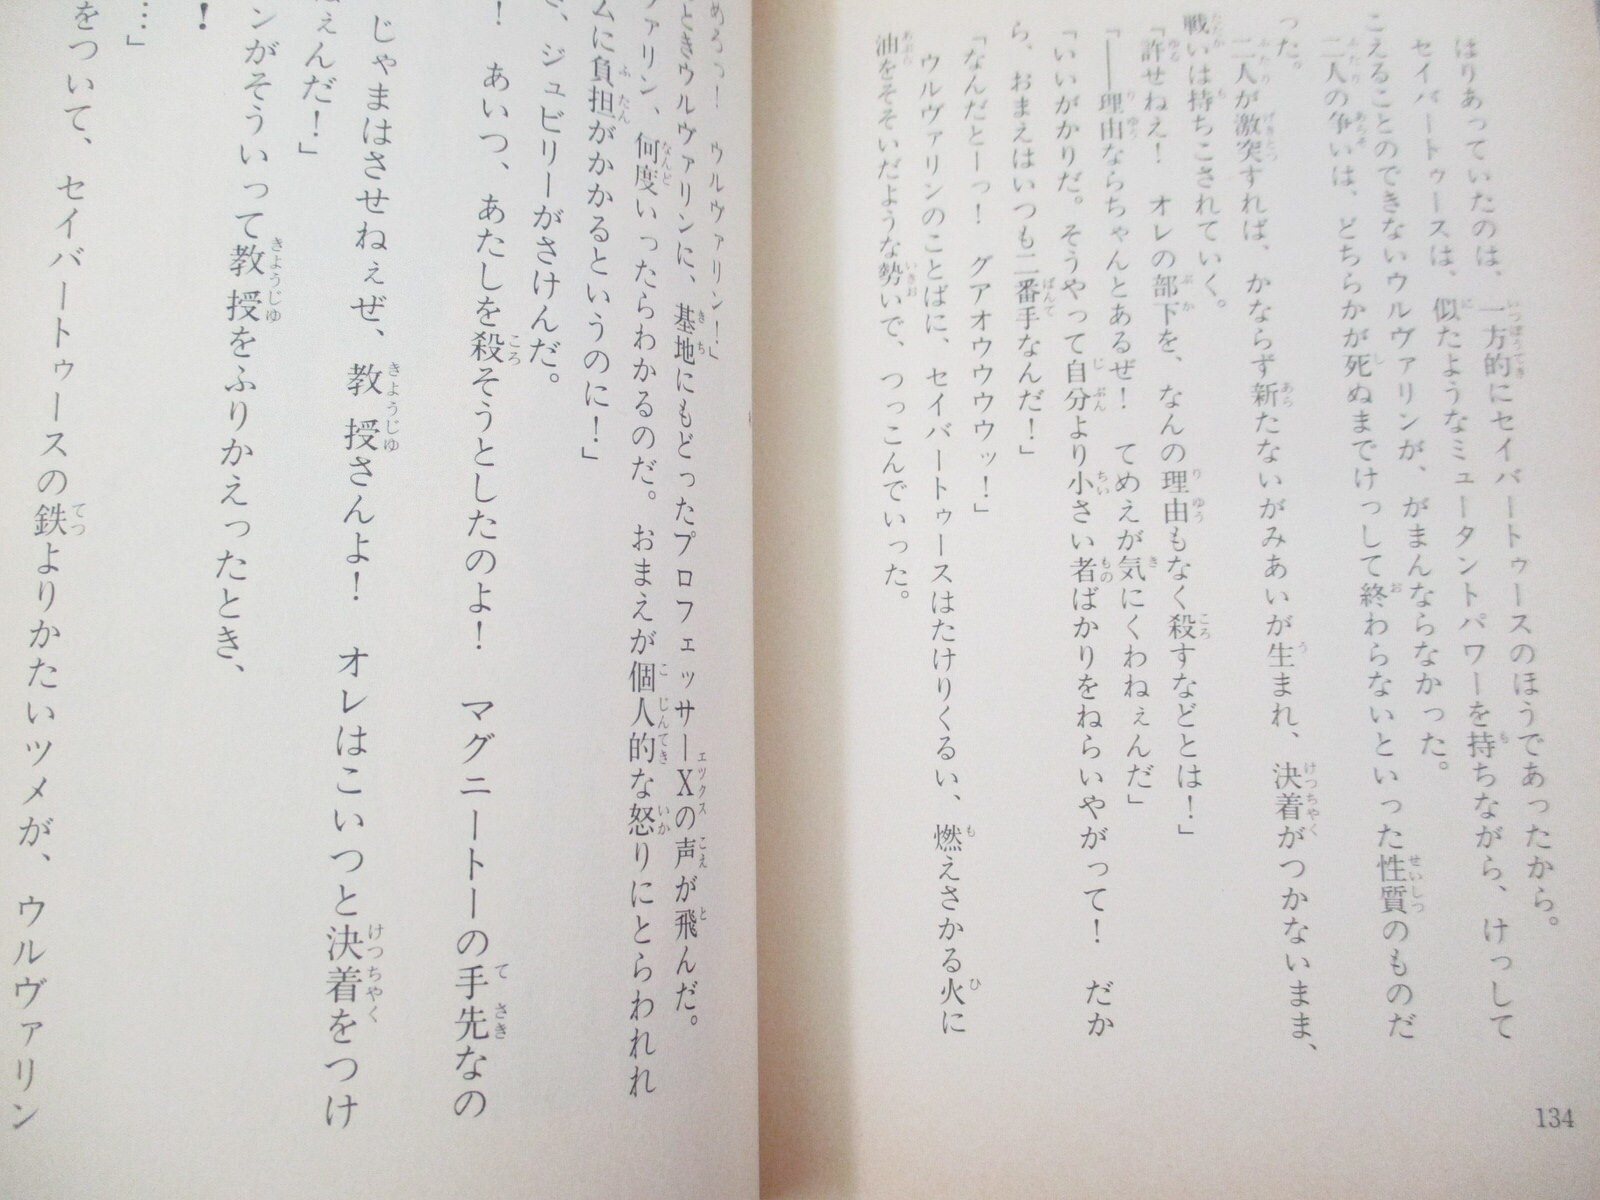 はりあっていたのは、一方的にセイバートゥースのほうであったから。
セイバートゥースは、似たようなミュータントパワーを持ちながら、けっして
こえることのできないウルヴァリンが、がまんならなかった。
二人の争いは、どちらかが死ぬまでけっして終わらないといった性質のものだ
った。
二人が激突すれば、かならず新たないがみあいが生まれ、決着がつかないまま、
戦いは持ちこされていく。
「許せねえ！　オレの部下を、なんの理由もなく殺すなどとは！」
「――理由ならちゃんとあるぜ！　てめえが気にくわねぇんだ」
「いいがかりだ。そうやって自分より小さい者ばかりをねらいやがって！　だか
ら、おまえはいつも二番手なんだ！」
「なんだとーっ！　グアオウウウウッ！」
ウルヴァリンのことばに、セイバートゥースはたけりくるい、燃えさかる火に
油をそそいだような勢いで、つっこんでいった。
134
めろっ！　ウルヴァリン！」
ときウルヴァリンに、基地にもどったプロフェッサーXの声が飛んだ。
ァリン、何度いったらわかるのだ。おまえが個人的な怒りにとらわれれ
ムに負担がかかるというのに！」
、ジュビリーがさけんだ。
！　あいつ、あたしを殺そうとしたのよ！　マグニートーの手先なの
！
じゃまはさせねぇぜ、教授さんよ！　オレはこいつと決着をつけ
ぇんだ！」
ンがそういって教授をふりかえったとき、
！
…」
をついて、セイバートゥースの鉄よりかたいツメが、ウルヴァリン